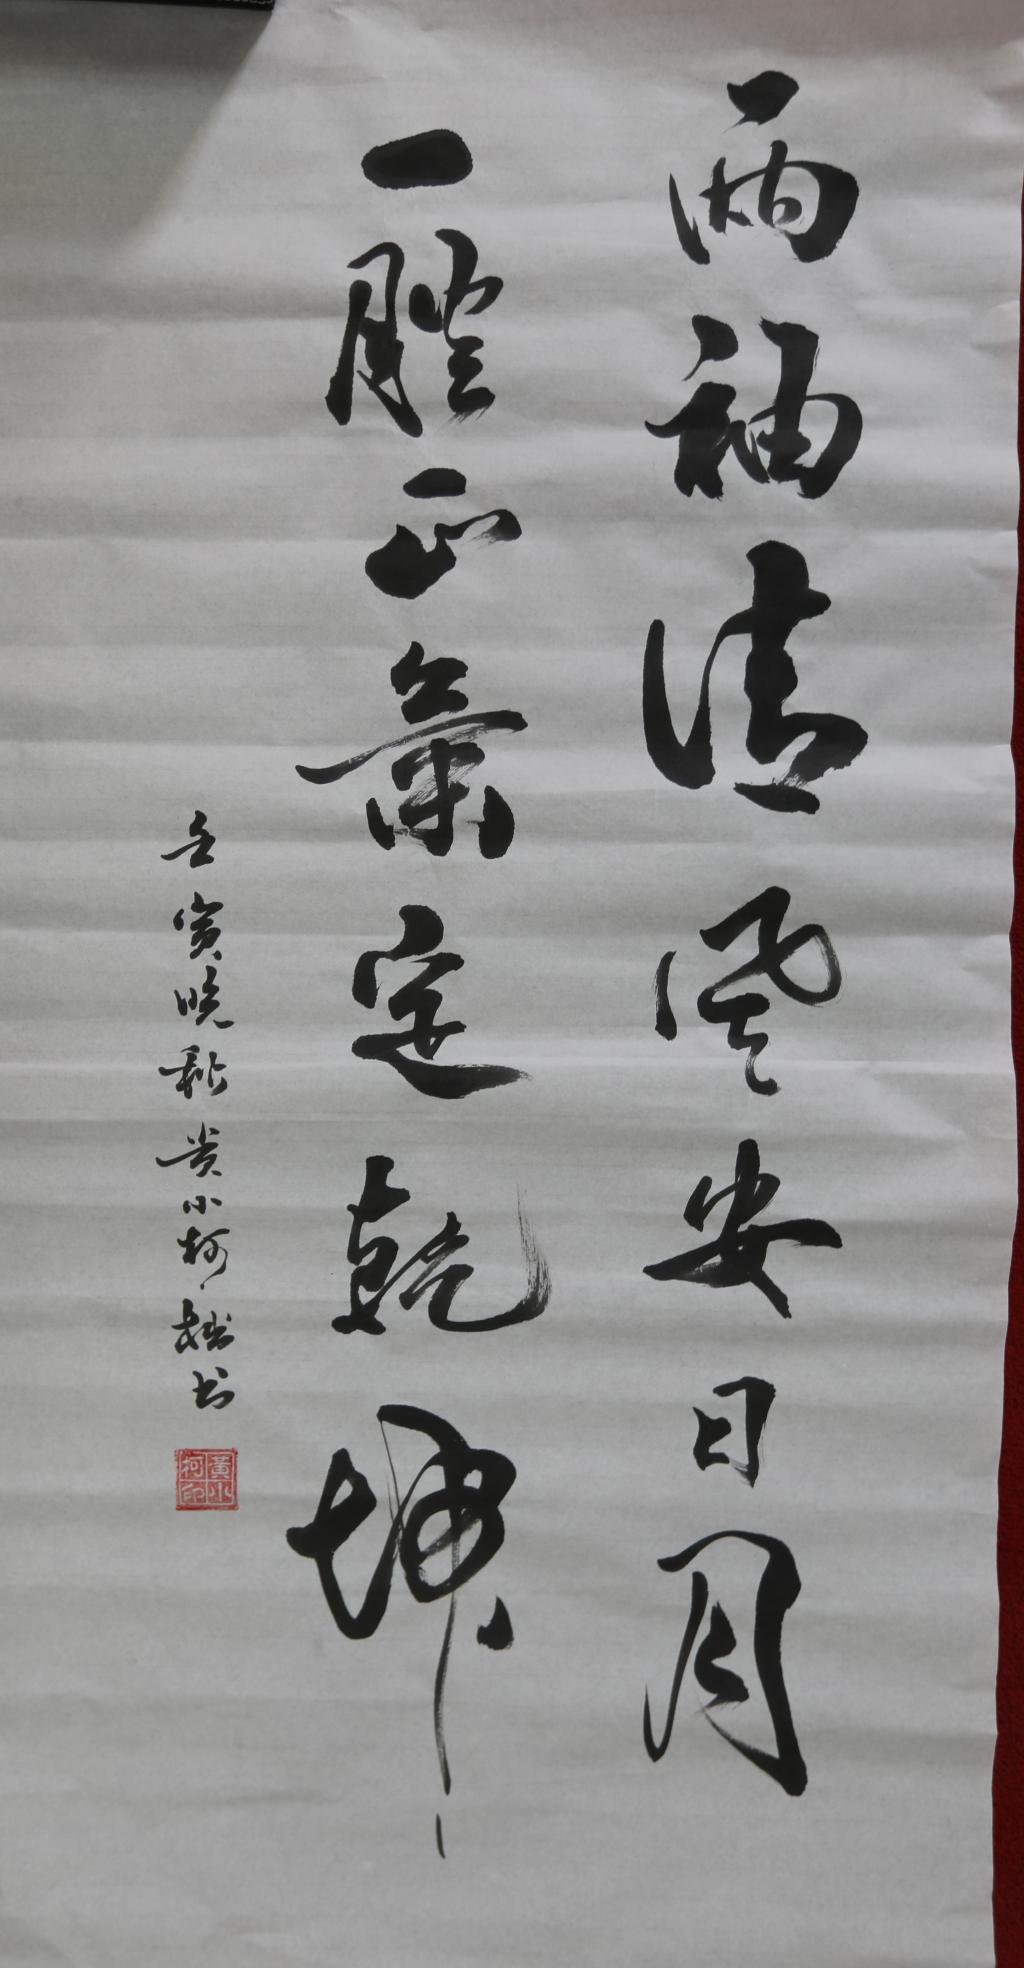 兩袖清風安日月
一腔正氣定乾坤
壬寅晚秋黄小柯拙书
黃小柯印